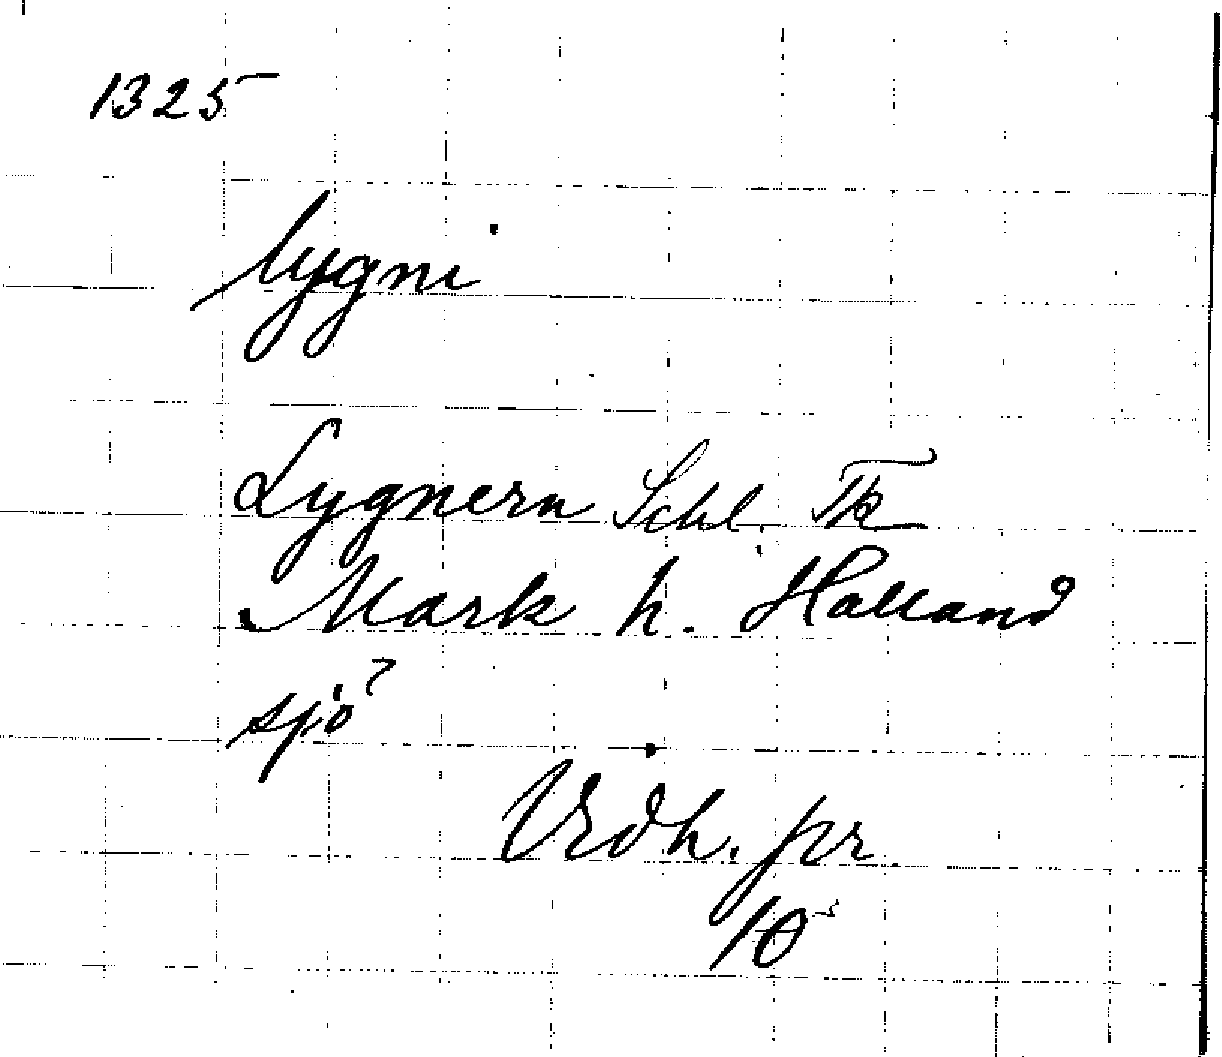 1325
lygni
Lygnern Schl. Tk
Mark h. Halland
sjö?
Vrdh. pr.
10